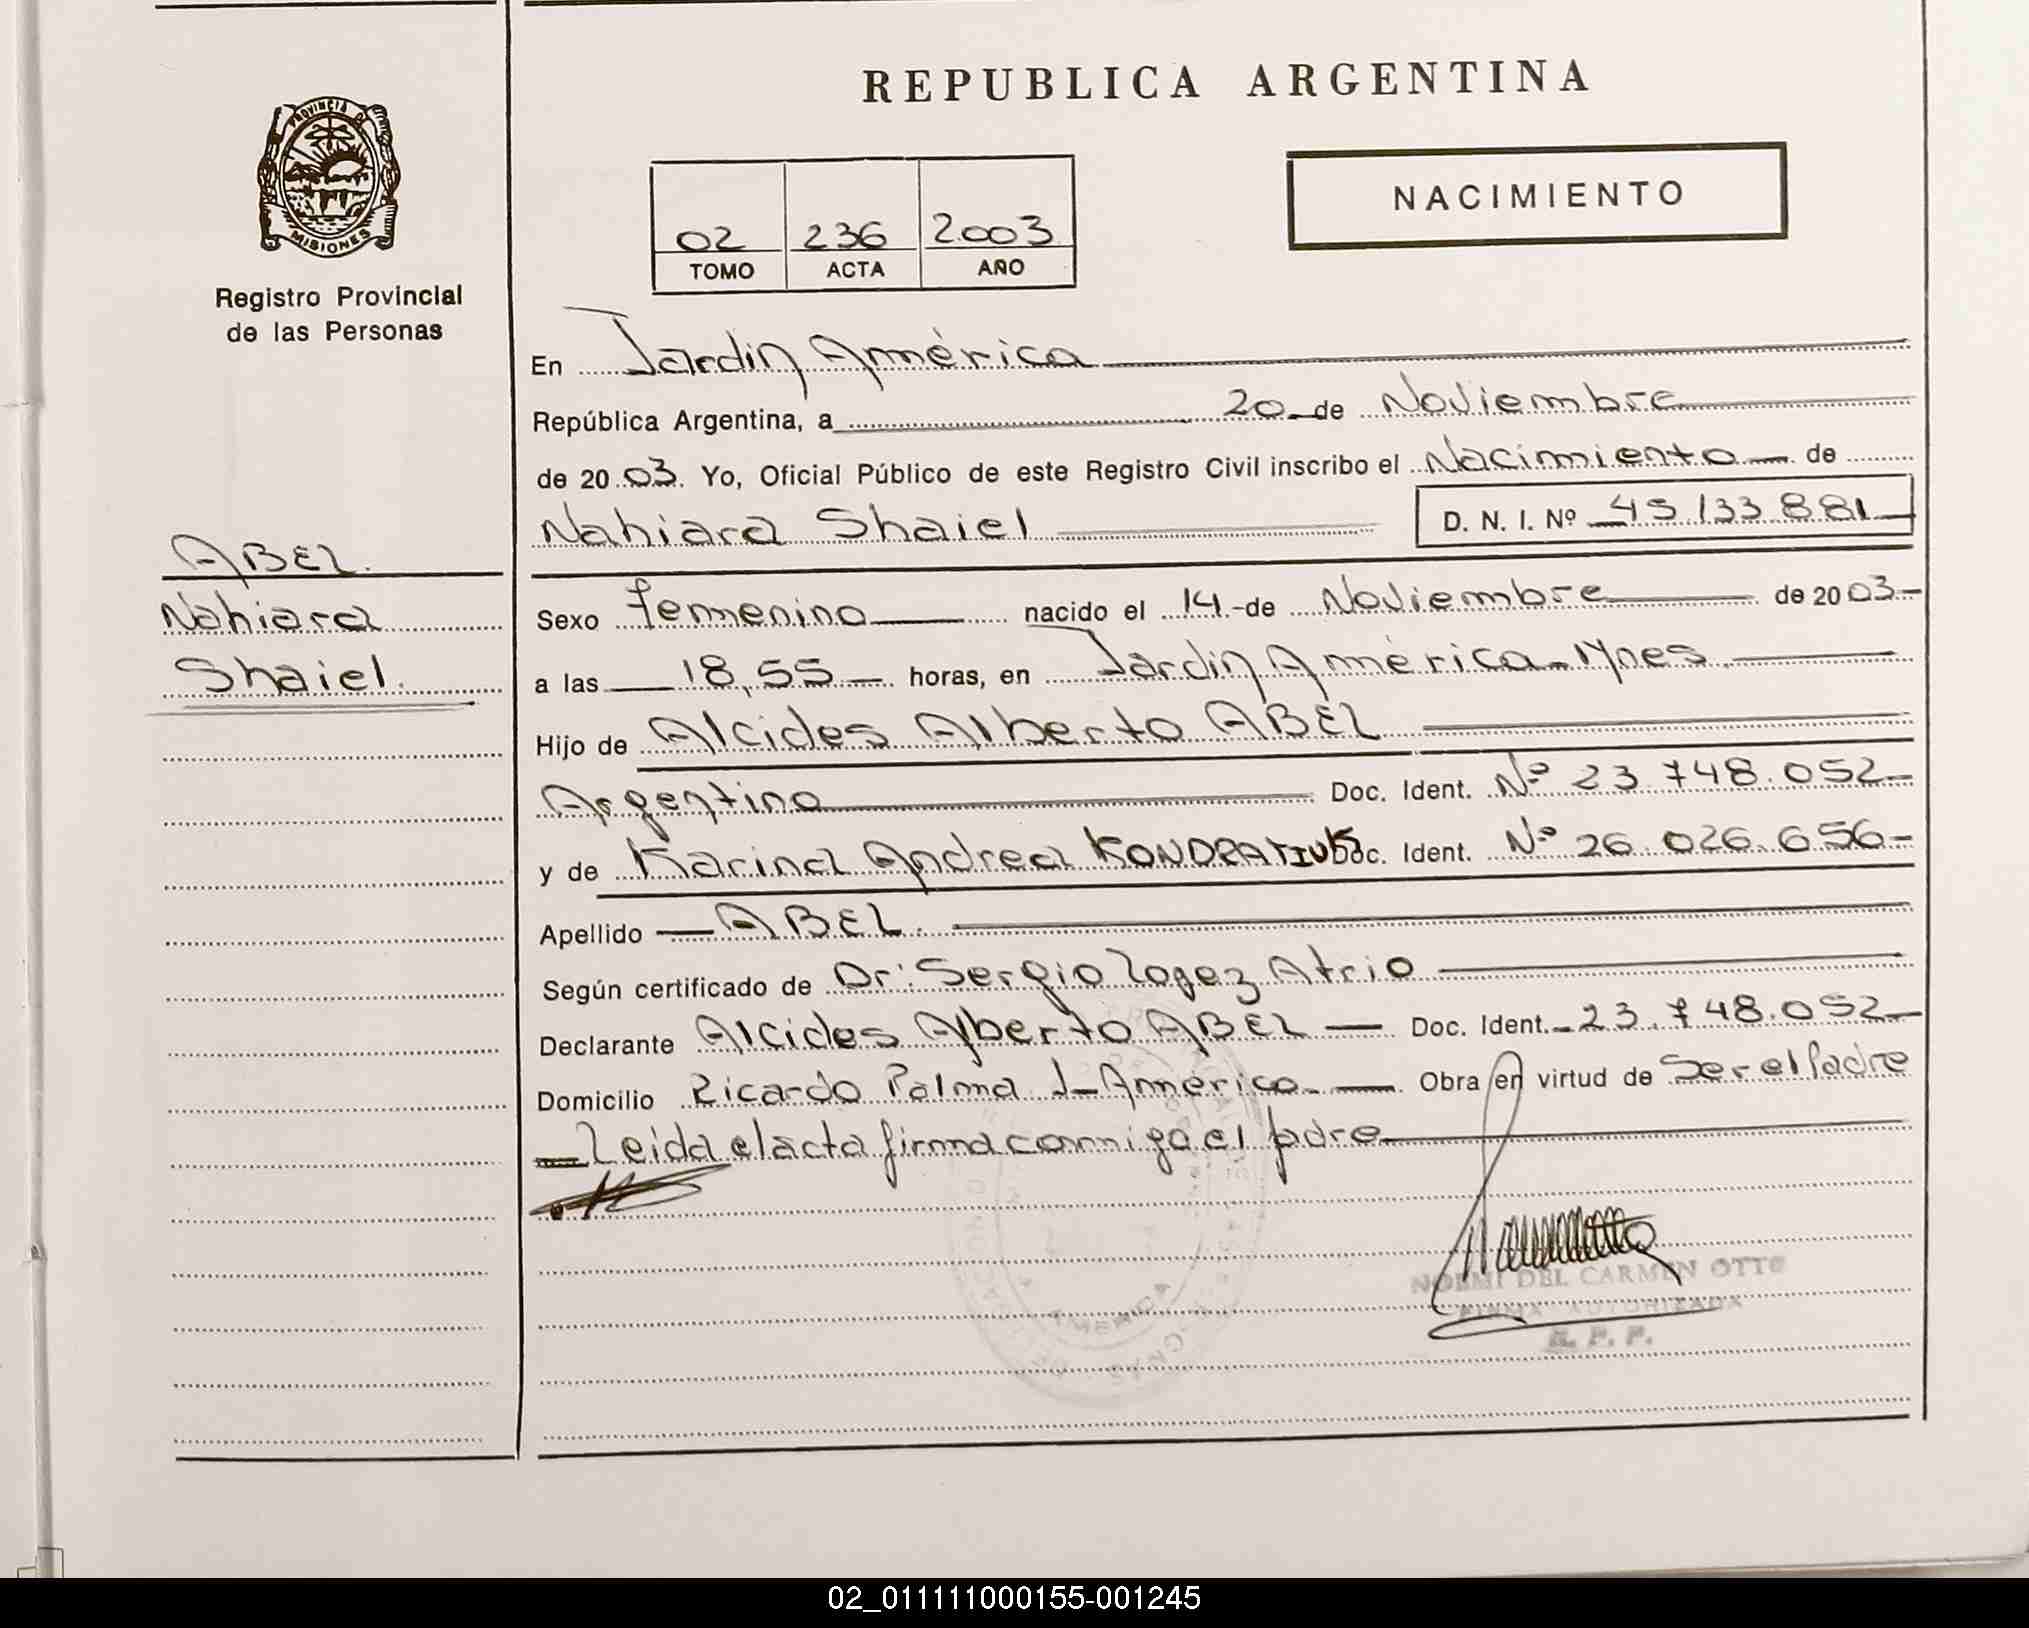 REPUBLICA ARGENTINA
PROVINCIA DE
MISIONES
Registro Provincial
de las Personas
02 236 2003
TOMO ACTA AÑO
NACIMIENTO
En Jardin América
República Argentina, a 20 de Noviembre
de 2003. Yo, Oficial Público de este Registro Civil inscribo el Nacimiento de
Nahiara Shaiel D. N. I. Nº 45.133.881
ABEL.
Nahiara
Shaiel.
Sexo femenino nacido el 14 de Noviembre de 2003
a las 18,55 horas, en Jardin América - Mnes
Hijo de Alcides Alberto ABEL
Argentino Doc. Ident. Nº 23.748.052
y de Karina Andrea KONDRATIUK Doc. Ident. Nº 26.026.656
Apellido ABEL.
Según certificado de Dr: Sergio Lopez Atrio
Declarante Alcides Alberto ABEL Doc. Ident. 23.748.052
Domicilio Ricardo Palma J-América Obra en virtud de Ser el Padre
Leida el acta firma conmigo el padre
NOEMI DEL CARMEN OTTO
FIRMA AUTORIZADA
R. P. P.
02_011111000155-001245